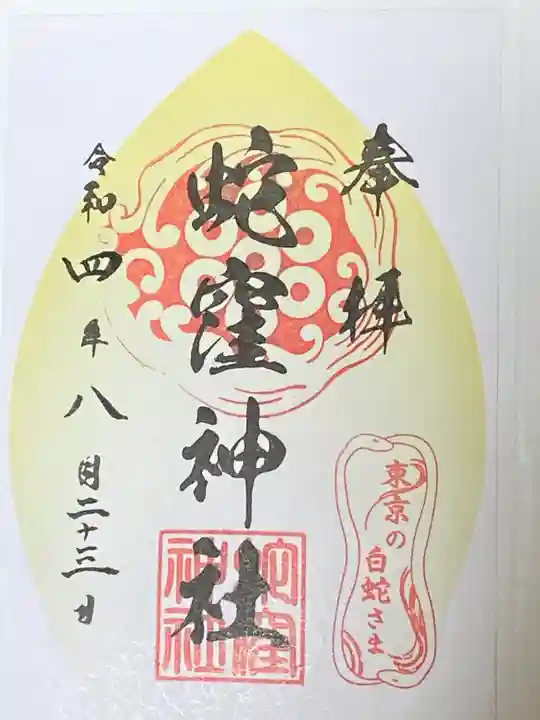 奉拝
蛇窪神社
令和四年八月二十三日
蛇窪
神社
東京の
白蛇さま